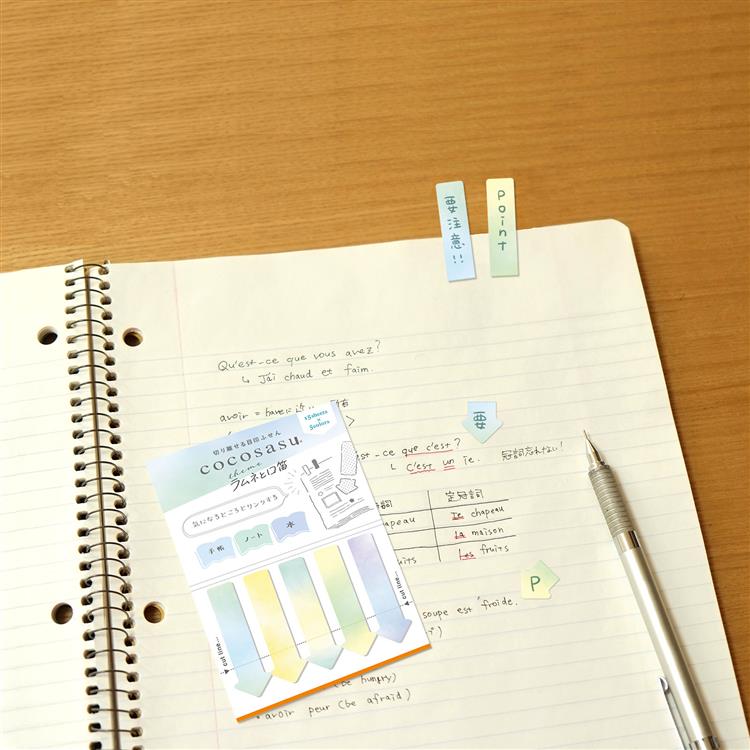 要注意!!
Point
Qu'est-ce que vous avez?
↳ J'ai chaud et faim.
avoir = haveに近い
要
st-ce que c'est?
↳ c'est un 冠詞忘れない!
冠詞 定冠詞
apeau le chapeau
la maison
uits Les fruits
P
soupe est froide.
(be hungry)
avoir peur (be afraid)
15sheets × 5colors
切り離せる目印ふせん
cocosasu
theme
ラムネと口笛
気になるところとリンクする
手帳 ノート 本
cut line...
cut line...